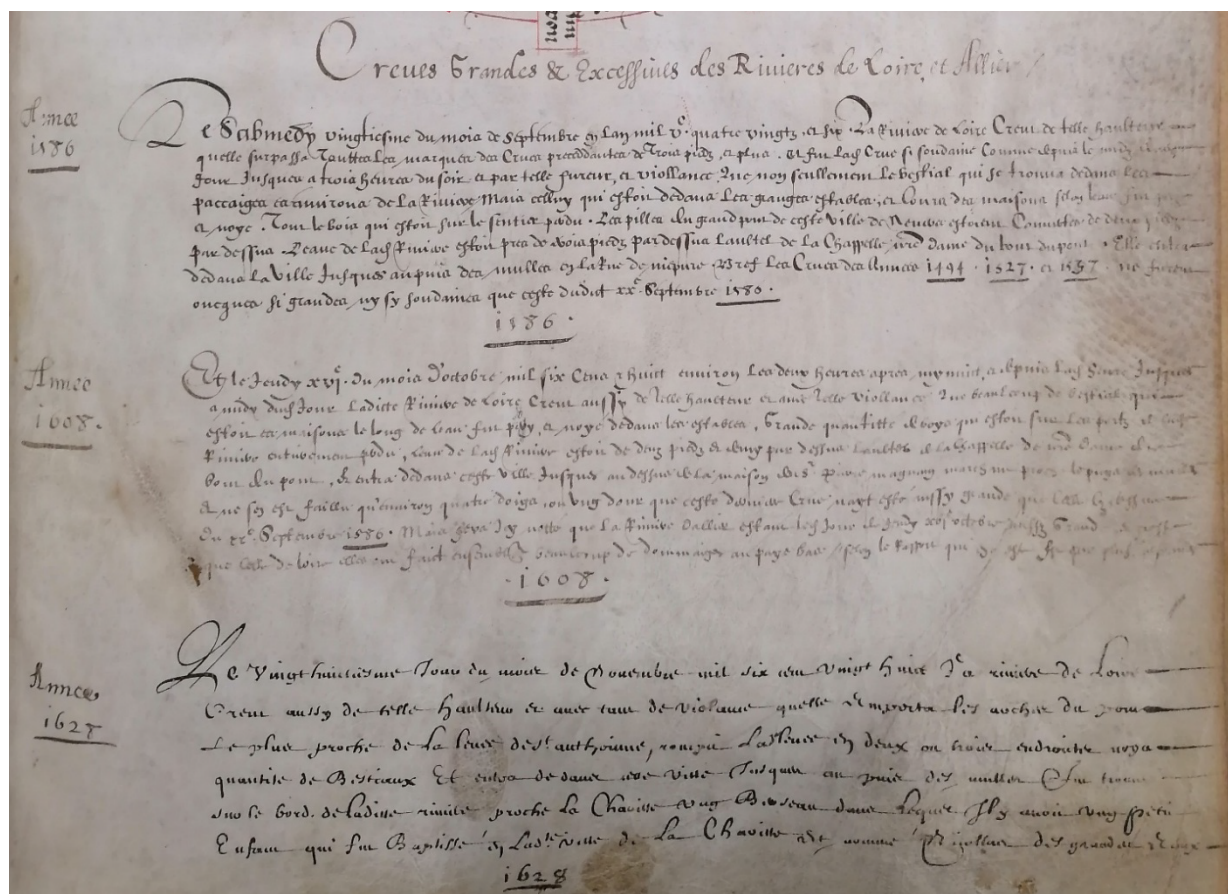 Creues Grandes & Excessiues des Riuieres de Loire, et Allier
Annee
1586
Le Sabmedy vingtiesme du mois de Septembre en Lan mil vc. quatre vingtz et six La Riuiere de Loire Creut de telle haulteur
quelle surpassa Touttes Les marques des Crues precedantes de Trois piedz, et plus. Et fut Crue si soudaine Comme depuis le
Jour Jusques a trois heures du soir et par telle fureur, et viollance, Que non seullement Le bestial qui se trouua dedans les
paccaiges es enuirons de La Riuiere Mais celluy qui estoit dedans Les granges estables, et Cours des maisons selon
et noye. Tout le bois qui estoit sur le sentier perdu. Les pilles du grand pont de ceste ville de Neuers estoient Couuertes de deux piedz
par dessus. Leaue de Riuiere estoit pres de trois piedz par dessus Laultel de La Chappelle nre dame du bout du pont. Elle entra
dedans La ville Jusques au puis des mulles en La Rue de nieure Bref Les Crues des Annees 1494. 1527. et 1537. ne furent
oncques si grandes, ny sy soudaines que ceste dudict xxe. Septembre 1580.
1586.
Annee
1608.
Et le Jeudy xvie. du mois d'octobre mil six Cens & huict enuiron Les deux heures apres mynuict, et depuis Jusques
a midy Jour Laditte Riuiere de Loire Creut aussy de telle haulteur et auec telle viollance Que beaucoup de bestial qui
estoit es maisons le long de leau fut pery, et noye dedans les estables, Grande quantitte de boys qui estoit sur Les portz
Riuiere entierement perdu, Leau de Riuiere estoit de deux piedz & demy par dessus Laultel de la Chappelle de nre Dame
bout du pont, & entra dedans ceste ville Jusques au dessus de La maison magnan
& ne sen est failly qu'enuiron quatre doigs, ou vng dour que ceste derniere Crue nayt esté aussy grande que Celle
Du xxe. Septembre 1580. Mais sera Icy notté que La Riuiere Dallier estant Jour de Jeudy xvie octobre aussy Grande
que celle de loire elles ont faict ensemble beaucoup de dommaiges au pays bas selon le Rapport qui
.1608.
Annee
1628
Le Vingt huictiesme Jour du mois de Nouembre mil six cens vingt huict La riuiere de Loire
Creut aussy de telle haulteur et auec tant de violance quelle Emporta les arches du pont
Le plus proche de La leuee de st. anthoinne, rompit La leuee en deux ou trois endroictz noya
quantité de Bestiaux Et entra dedans ceste ville Jusques au puis des mulles fut trouué
sur le bord de laditte riuiere proche La Charitté vng Berseau dans Lequel Il y auoit vng petit
Enfant qui fut Baptissé en Ladte ville de La Charitté et nommé des grandes Eaux
1628